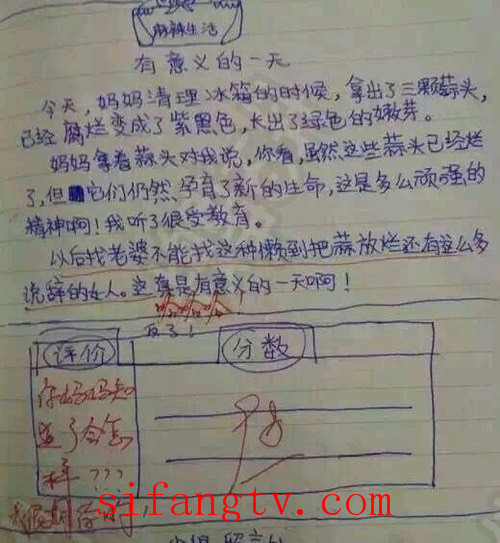 麻辣生活
有意义的一天
今天，妈妈清理冰箱的时候，拿出了三颗蒜头，
已经腐烂变成了紫黑色，长出了绿色的嫩芽。
妈妈拿着蒜头对我说，你看，虽然这些蒜头已经烂
了，但它们仍然孕育了新的生命，这是多么顽强的
精神啊！我听了很受教育。
以后找老婆不能找这种懒到把蒜放烂还有这么多
说辞的女人。这真是有意义的一天啊！
哈哈哈
反了！
评价
分数
你妈妈知
道了会怎
样???
sifangtv.com